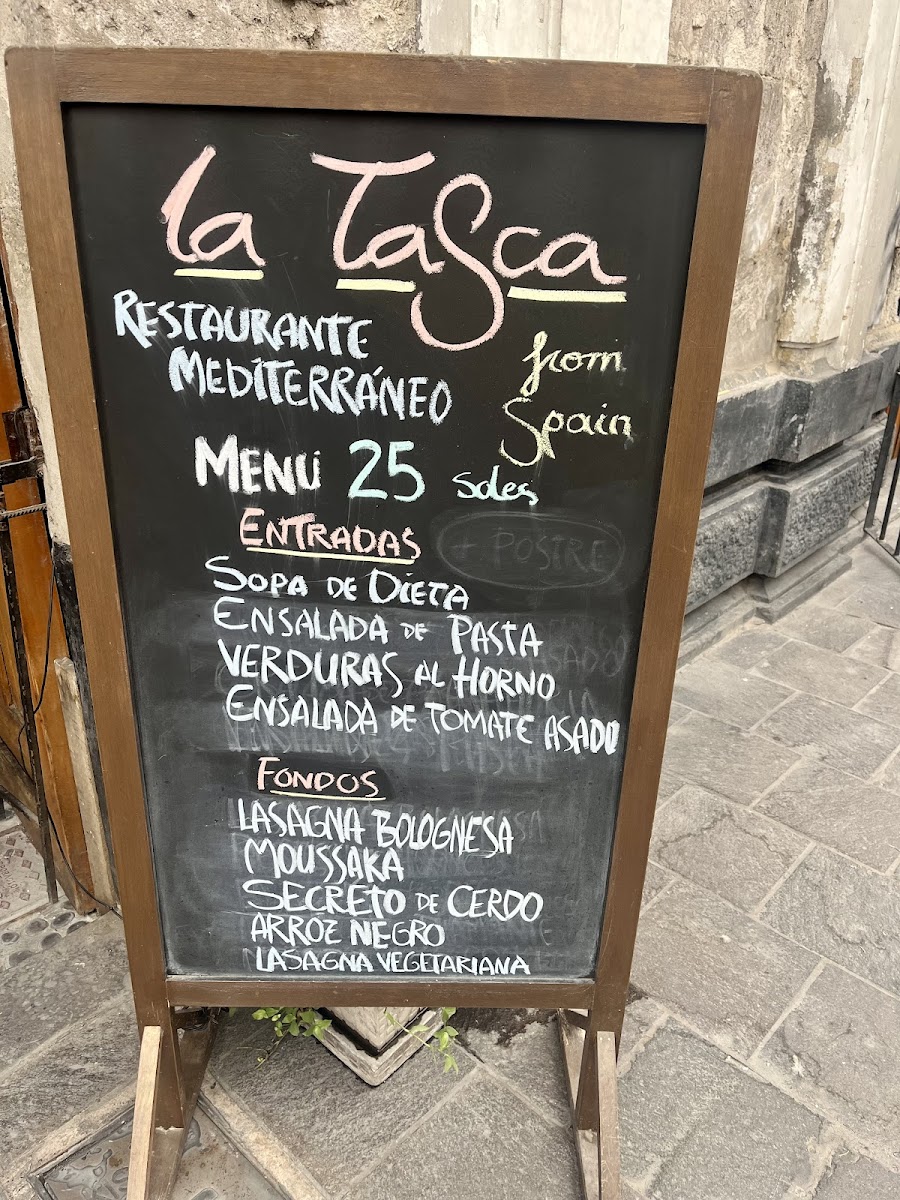 La Tasca
RESTAURANTE
MEDITERRÁNEO
from
Spain
MENÚ 25 soles
ENTRADAS
+ POSTRE
SOPA DE DIETA
ENSALADA DE PASTA
VERDURAS AL HORNO
ENSALADA DE TOMATE ASADO
FONDOS
LASAGNA BOLOGNESA
MOUSSAKA
SECRETO DE CERDO
ARROZ NEGRO
LASAGNA VEGETARIANA